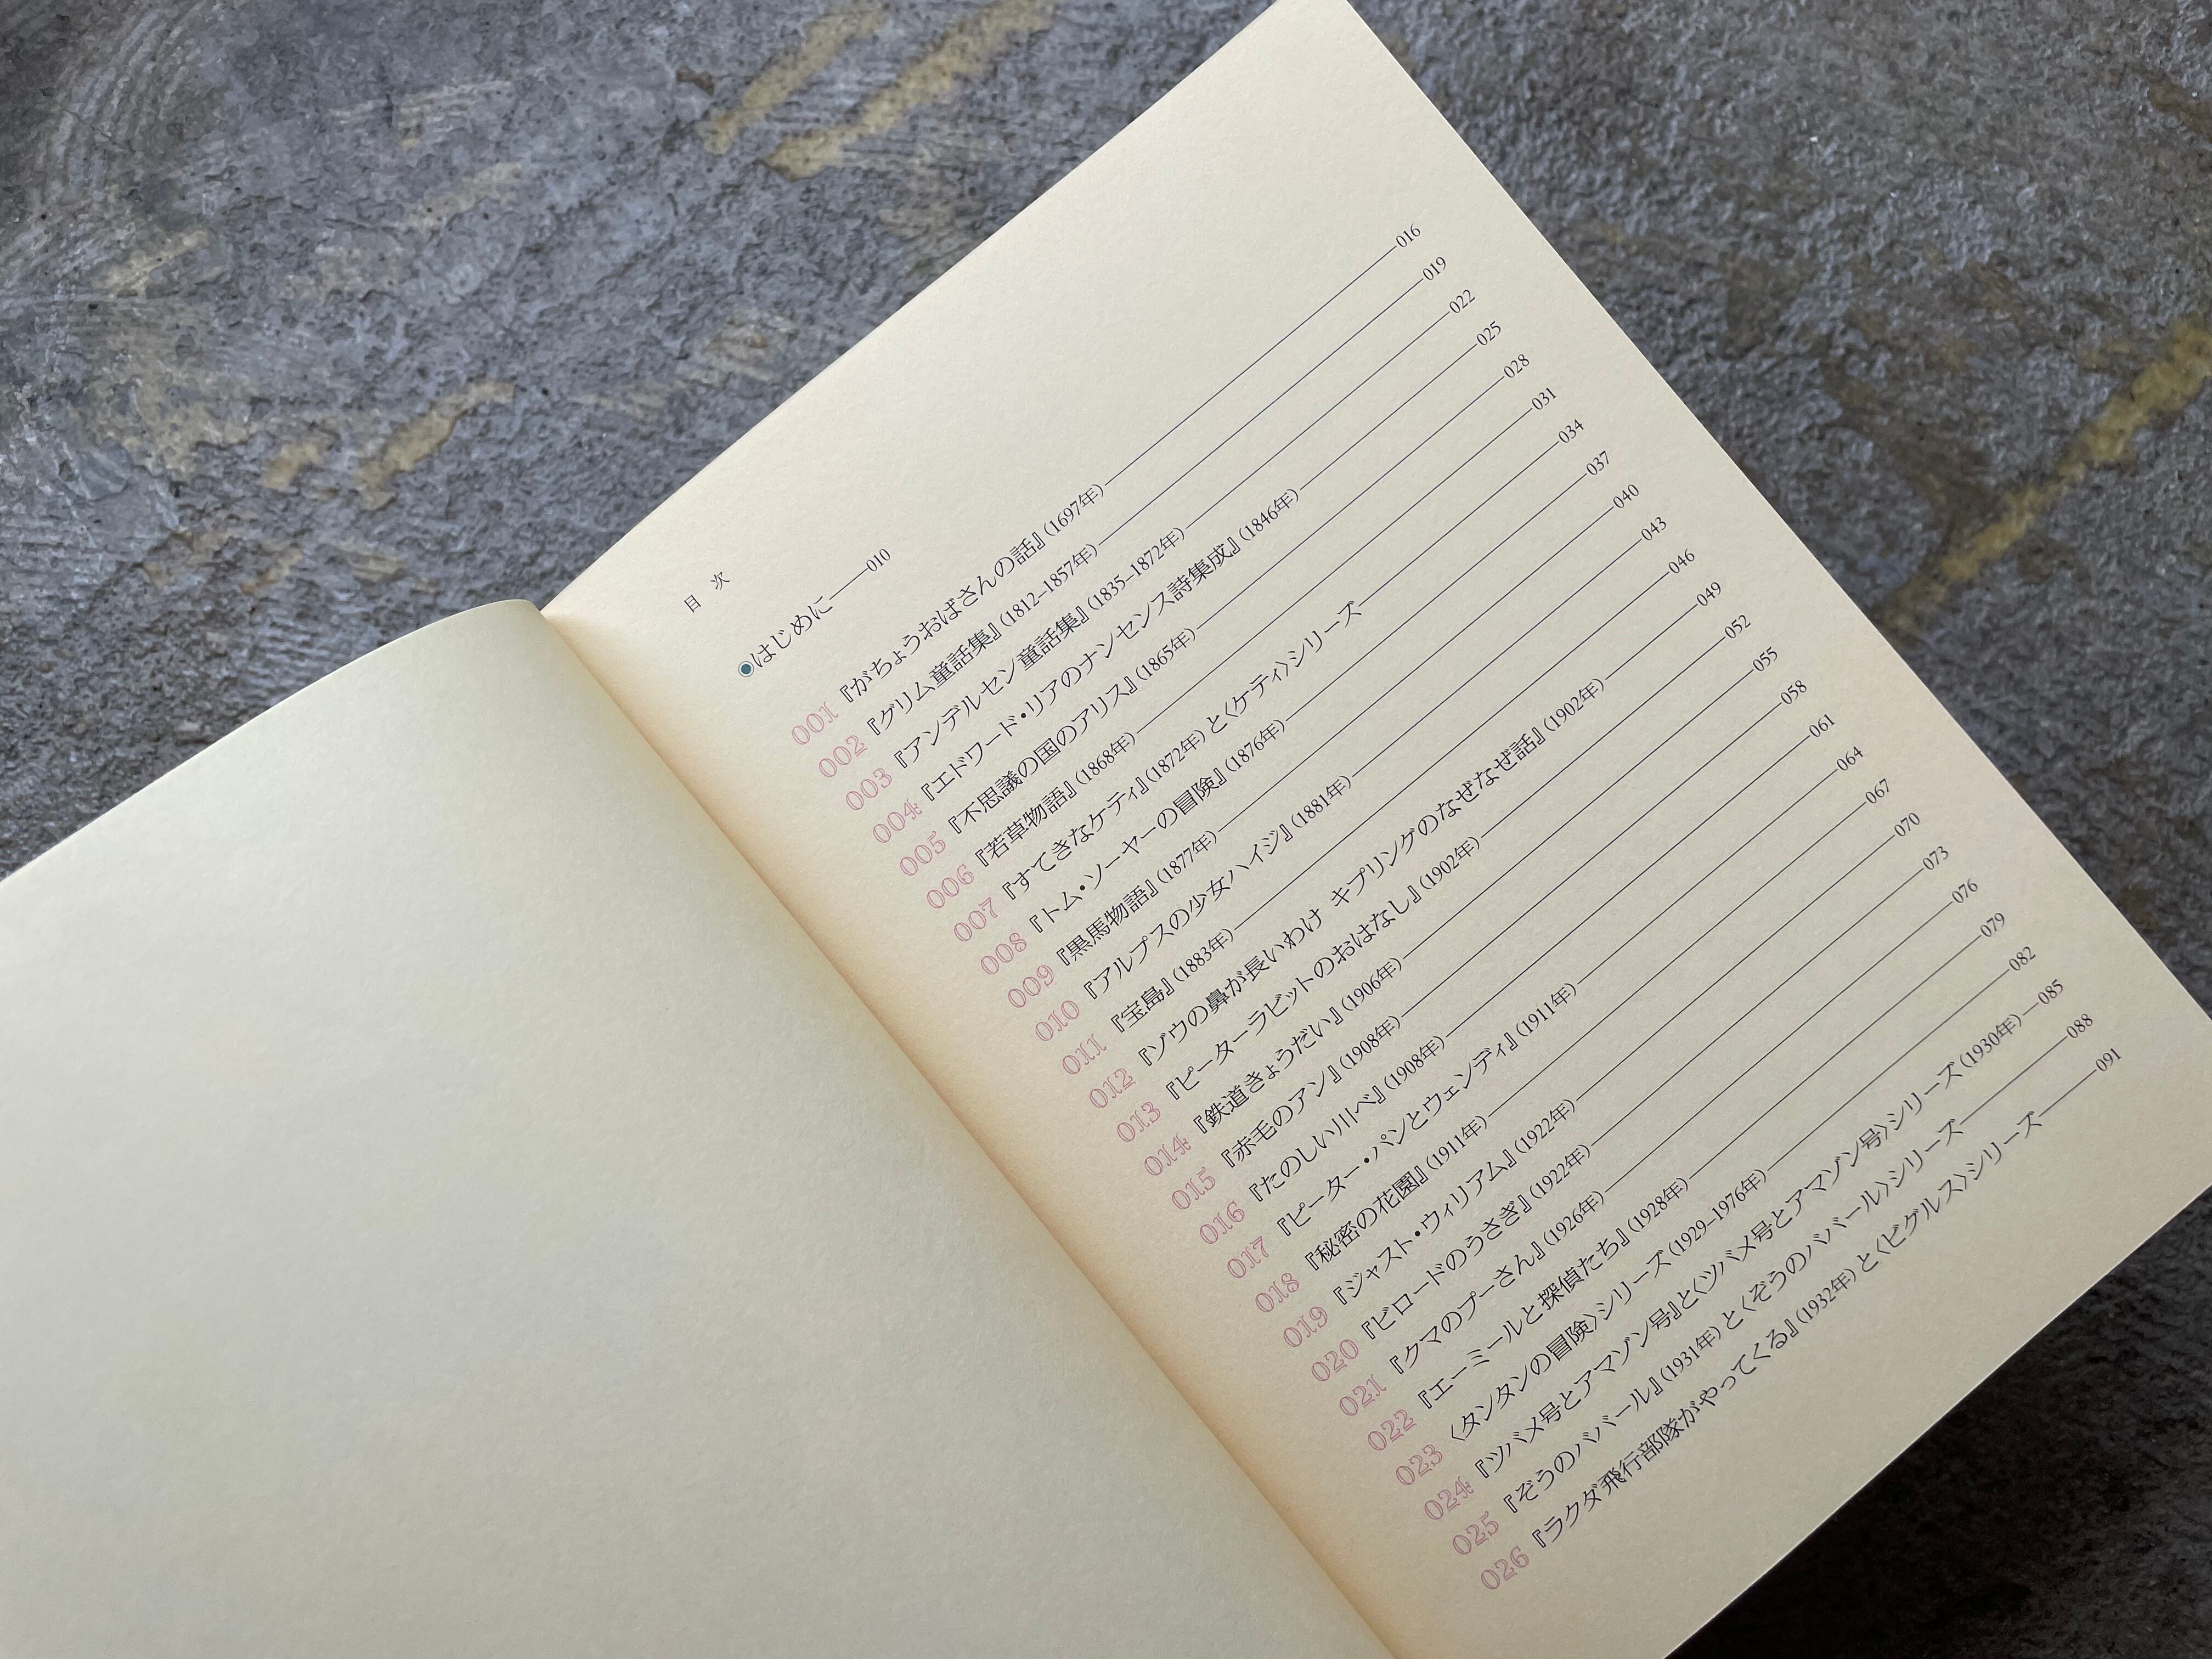 目次
はじめに――010
001 『がちょうおばさんの話』(1697年)――016
002 『グリム童話集』(1812–1857年)――019
003 『アンデルセン童話集』(1835–1872年)――022
004 『エドワード・リアのナンセンス詩集成』(1846年)――025
005 『不思議の国のアリス』(1865年)――028
006 『若草物語』(1868年)――031
007 『すてきなケティ』(1872年)と〈ケティ〉シリーズ――034
008 『トム・ソーヤーの冒険』(1876年)――037
009 『黒馬物語』(1877年)――040
010 『アルプスの少女ハイジ』(1881年)――043
011 『宝島』(1883年)――046
012 『ゾウの鼻が長いわけ キプリングのなぜなぜ話』(1902年)――049
013 『ピーターラビットのおはなし』(1902年)――052
014 『鉄道きょうだい』(1906年)――055
015 『赤毛のアン』(1908年)――058
016 『たのしい川べ』(1908年)――061
017 『ピーター・パンとウェンディ』(1911年)――064
018 『秘密の花園』(1911年)――067
019 『ジャスト・ウィリアム』(1922年)――070
020 『ビロードのうさぎ』(1922年)――073
021 『クマのプーさん』(1926年)――076
022 『エーミールと探偵たち』(1928年)――079
023 〈タンタンの冒険〉シリーズ(1929–1976年)――082
024 『ツバメ号とアマゾン号』と〈ツバメ号とアマゾン号〉シリーズ(1930年)――085
025 『ぞうのババール』(1931年)と〈ぞうのババール〉シリーズ――088
026 『ラクダ飛行部隊がやってくる』(1932年)と〈ビグルス〉シリーズ――091